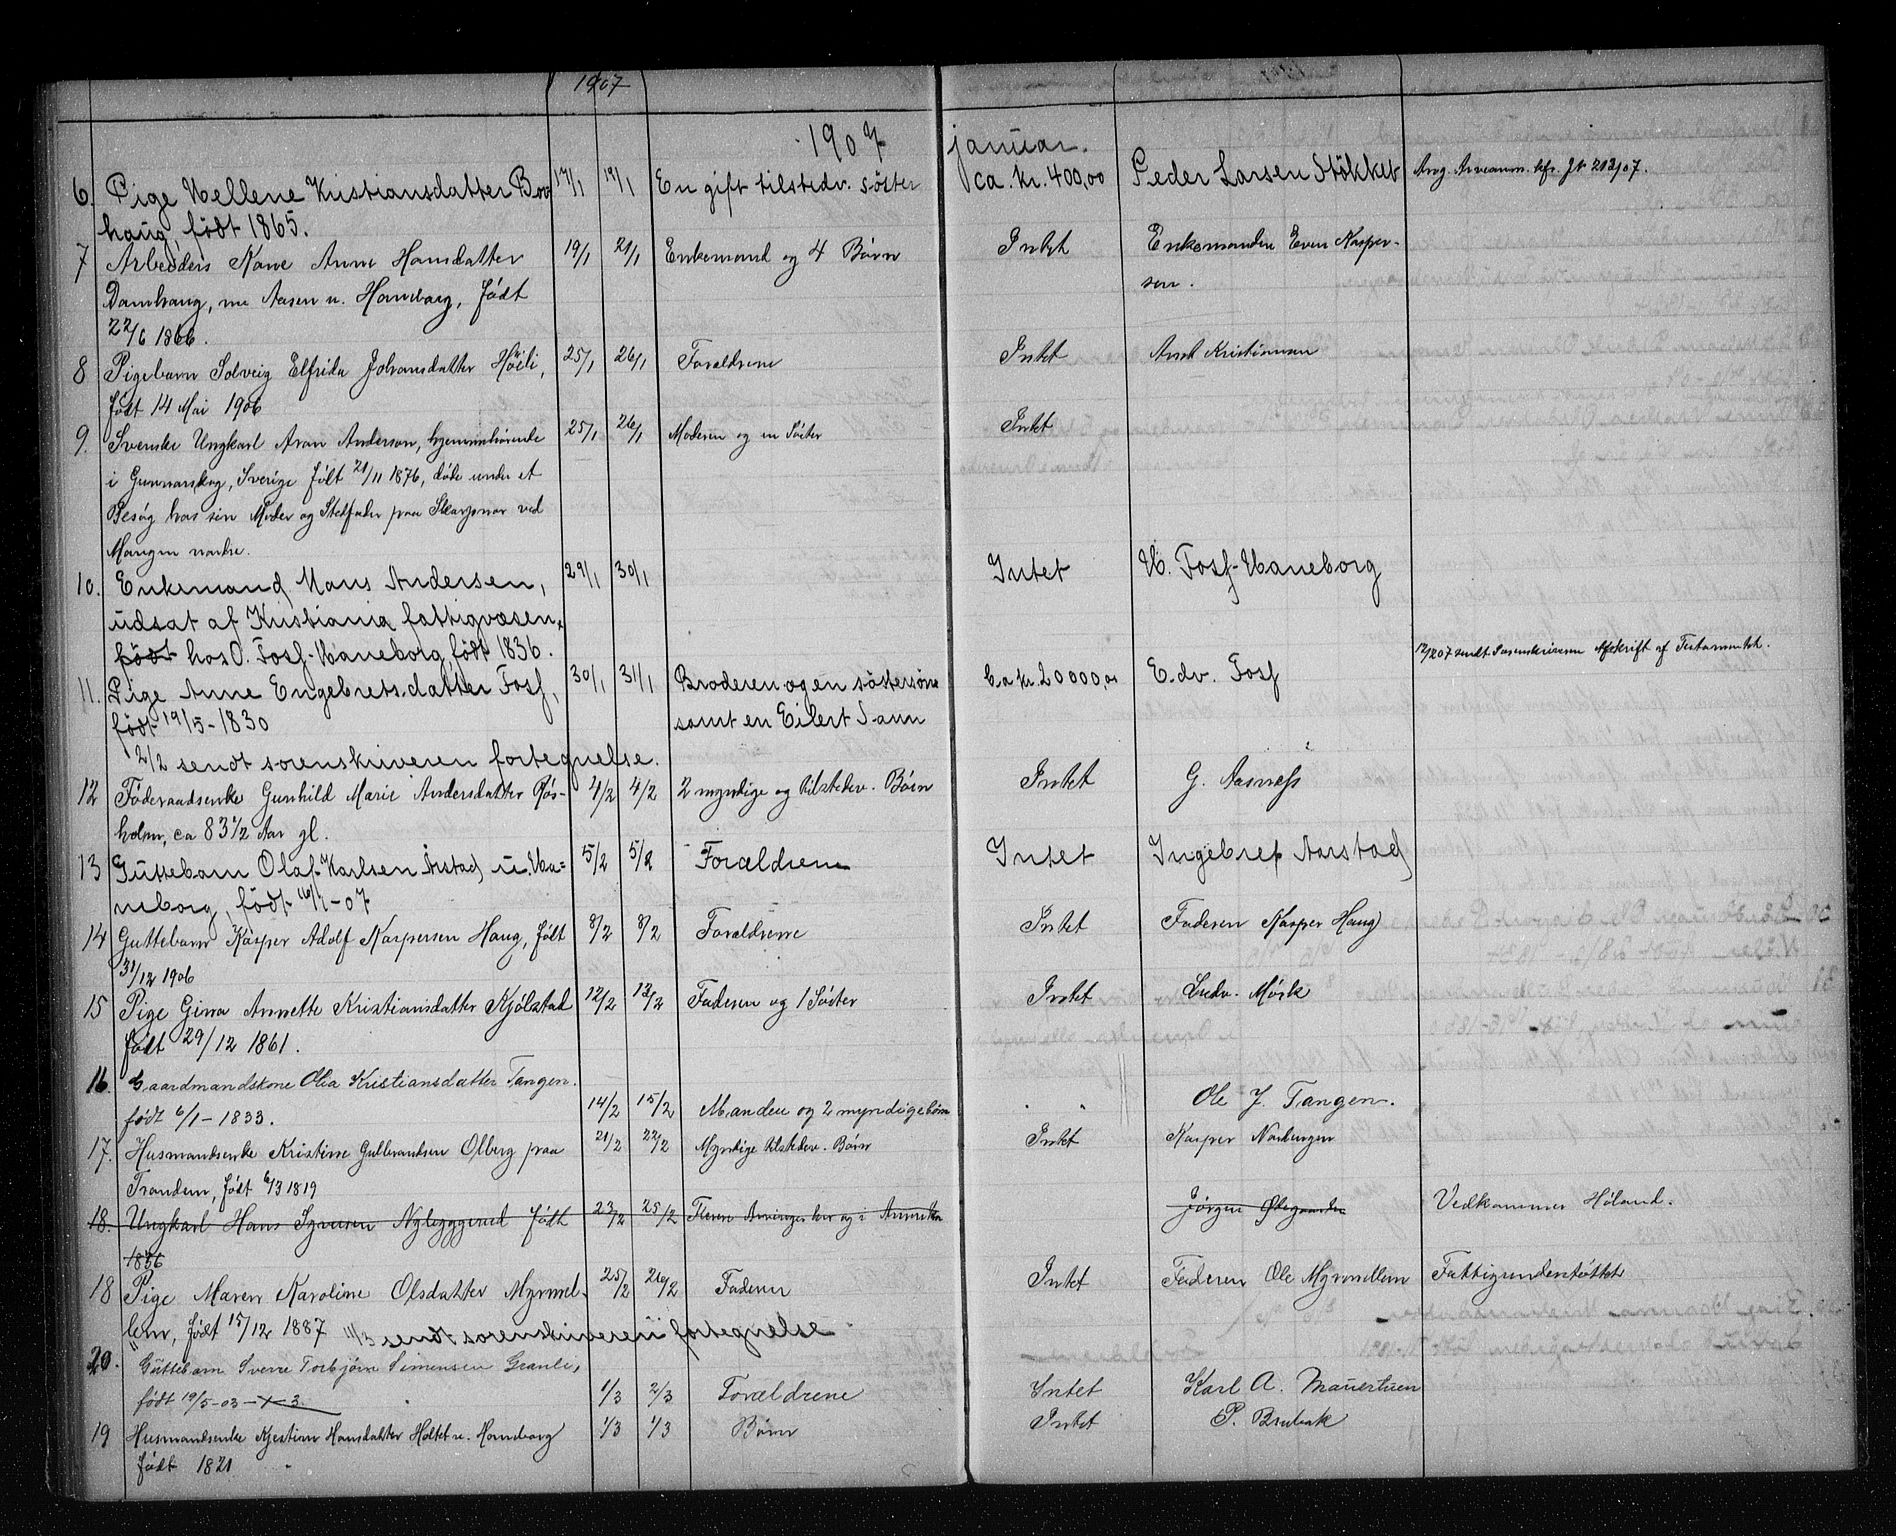 1907
1907 januar.
6. Pige Hellene Kristiansdatter Bro 17/1 19/1 En gift tilstedv. söster ca. kr. 400,00 Peder Larsen Stökket 213/07.
haug, född 1865.
7 Arbeiders Kone Anne Hansdatter 19/1 21/1 Enkemand og 4 Børn Intet Enkemanden Even Kasper-
Damhaug, Aasen u. Haneborg, født sen.
22/6 1866.
8 Pigebarn Solveig Elfrida Johansdatter Høili, 25/1 26/1 Forældrene Intet Kristiansen
født 14 Mai 1906
9. Svenske Ungkarl Aron Anderson, hjemmehørende 25/1 26/1 Moderen og en Søster Intet
i Gunnarskog, Sverige født 21/11 1876, døde under et
Besøg hos sin Moder og Stedfader paa ved
Mangen
10. Enkemand Hans Andersen, 29/1 30/1 Intet H. Foss-Haneborg
udsat af Kristiania fattigvæsen
født hos O. Foss-Haneborg, født 1836.
12/2 07 sendt Sorenskriveren Afskrift af Testamentet.
11. Pige Anne Engebretsdatter Foss, 30/1 31/1 Broderen og en söstersön Ca kr. 20000,00 Edv. Foss
født 19/5-1830 samt en Eilert Sann
12/2 sendt sorenskriveren fortegnelse.
12 Føderaadsenke Gunhild Marie Andersdatter Røs- 4/2 4/2 2 myndige og tilstedev. Børn Intet G. Aasness
holm, ca 83 1/2 Aar gl.
13 Guttebarn Olaf Karlsen Årstad u. Ha= 5/2 5/2 Forældrene Intet Ingebret Aarstad
neborg, født 16/1-07
14 Guttebarn Kasper Adolf Kaspersen Haug, født 8/2 8/2 Forældrene Intet Faderen Kasper Haug
31/12 1906
15 Pige Gina Annette Kristiansdatter Kjølstad 12/2 13/2 Faderen og 1 Søster Intet Ludv. Mørk
født 29/12 1861.
16. Gaardmandskone Olia Kristiansdatter Tangen.
født 6/1-1833. 14/2 15/2 Manden og 2 myndige børn " " Ole J. Tangen.
17. Husmandsenke Kristine Gulbrandsen Olberg paa 21/2 22/2 Myndige tilstedev. Børn Intet Kasper
Trandem, født 6/3 1819
18. Ungkarl Hans Nyleggerud født 23/2 25/2 Flere Arvinger her og i Amerika Jørgen Vedkommer Høland.
1836
18 Pige Maren Karoline Olsdatter Myrmel- 25/2 26/2 Faderen Intet Faderen Ole Myrmellem Fattigunderstøttet
lem, født 15/12 1887 11/3 sendt sorenskriveren fortegnelse
20. Guttebarn Sverre Torbjørn Simensen Granli,
født 19/5-03 1/3 2/3 Forældrene Intet Karl A. Mauertuen
19 Husmandsenke Kjestine Hansdatter Holtet u. Haneborg 1/3 1/3 Børn Intet P. Brubak
født 1821